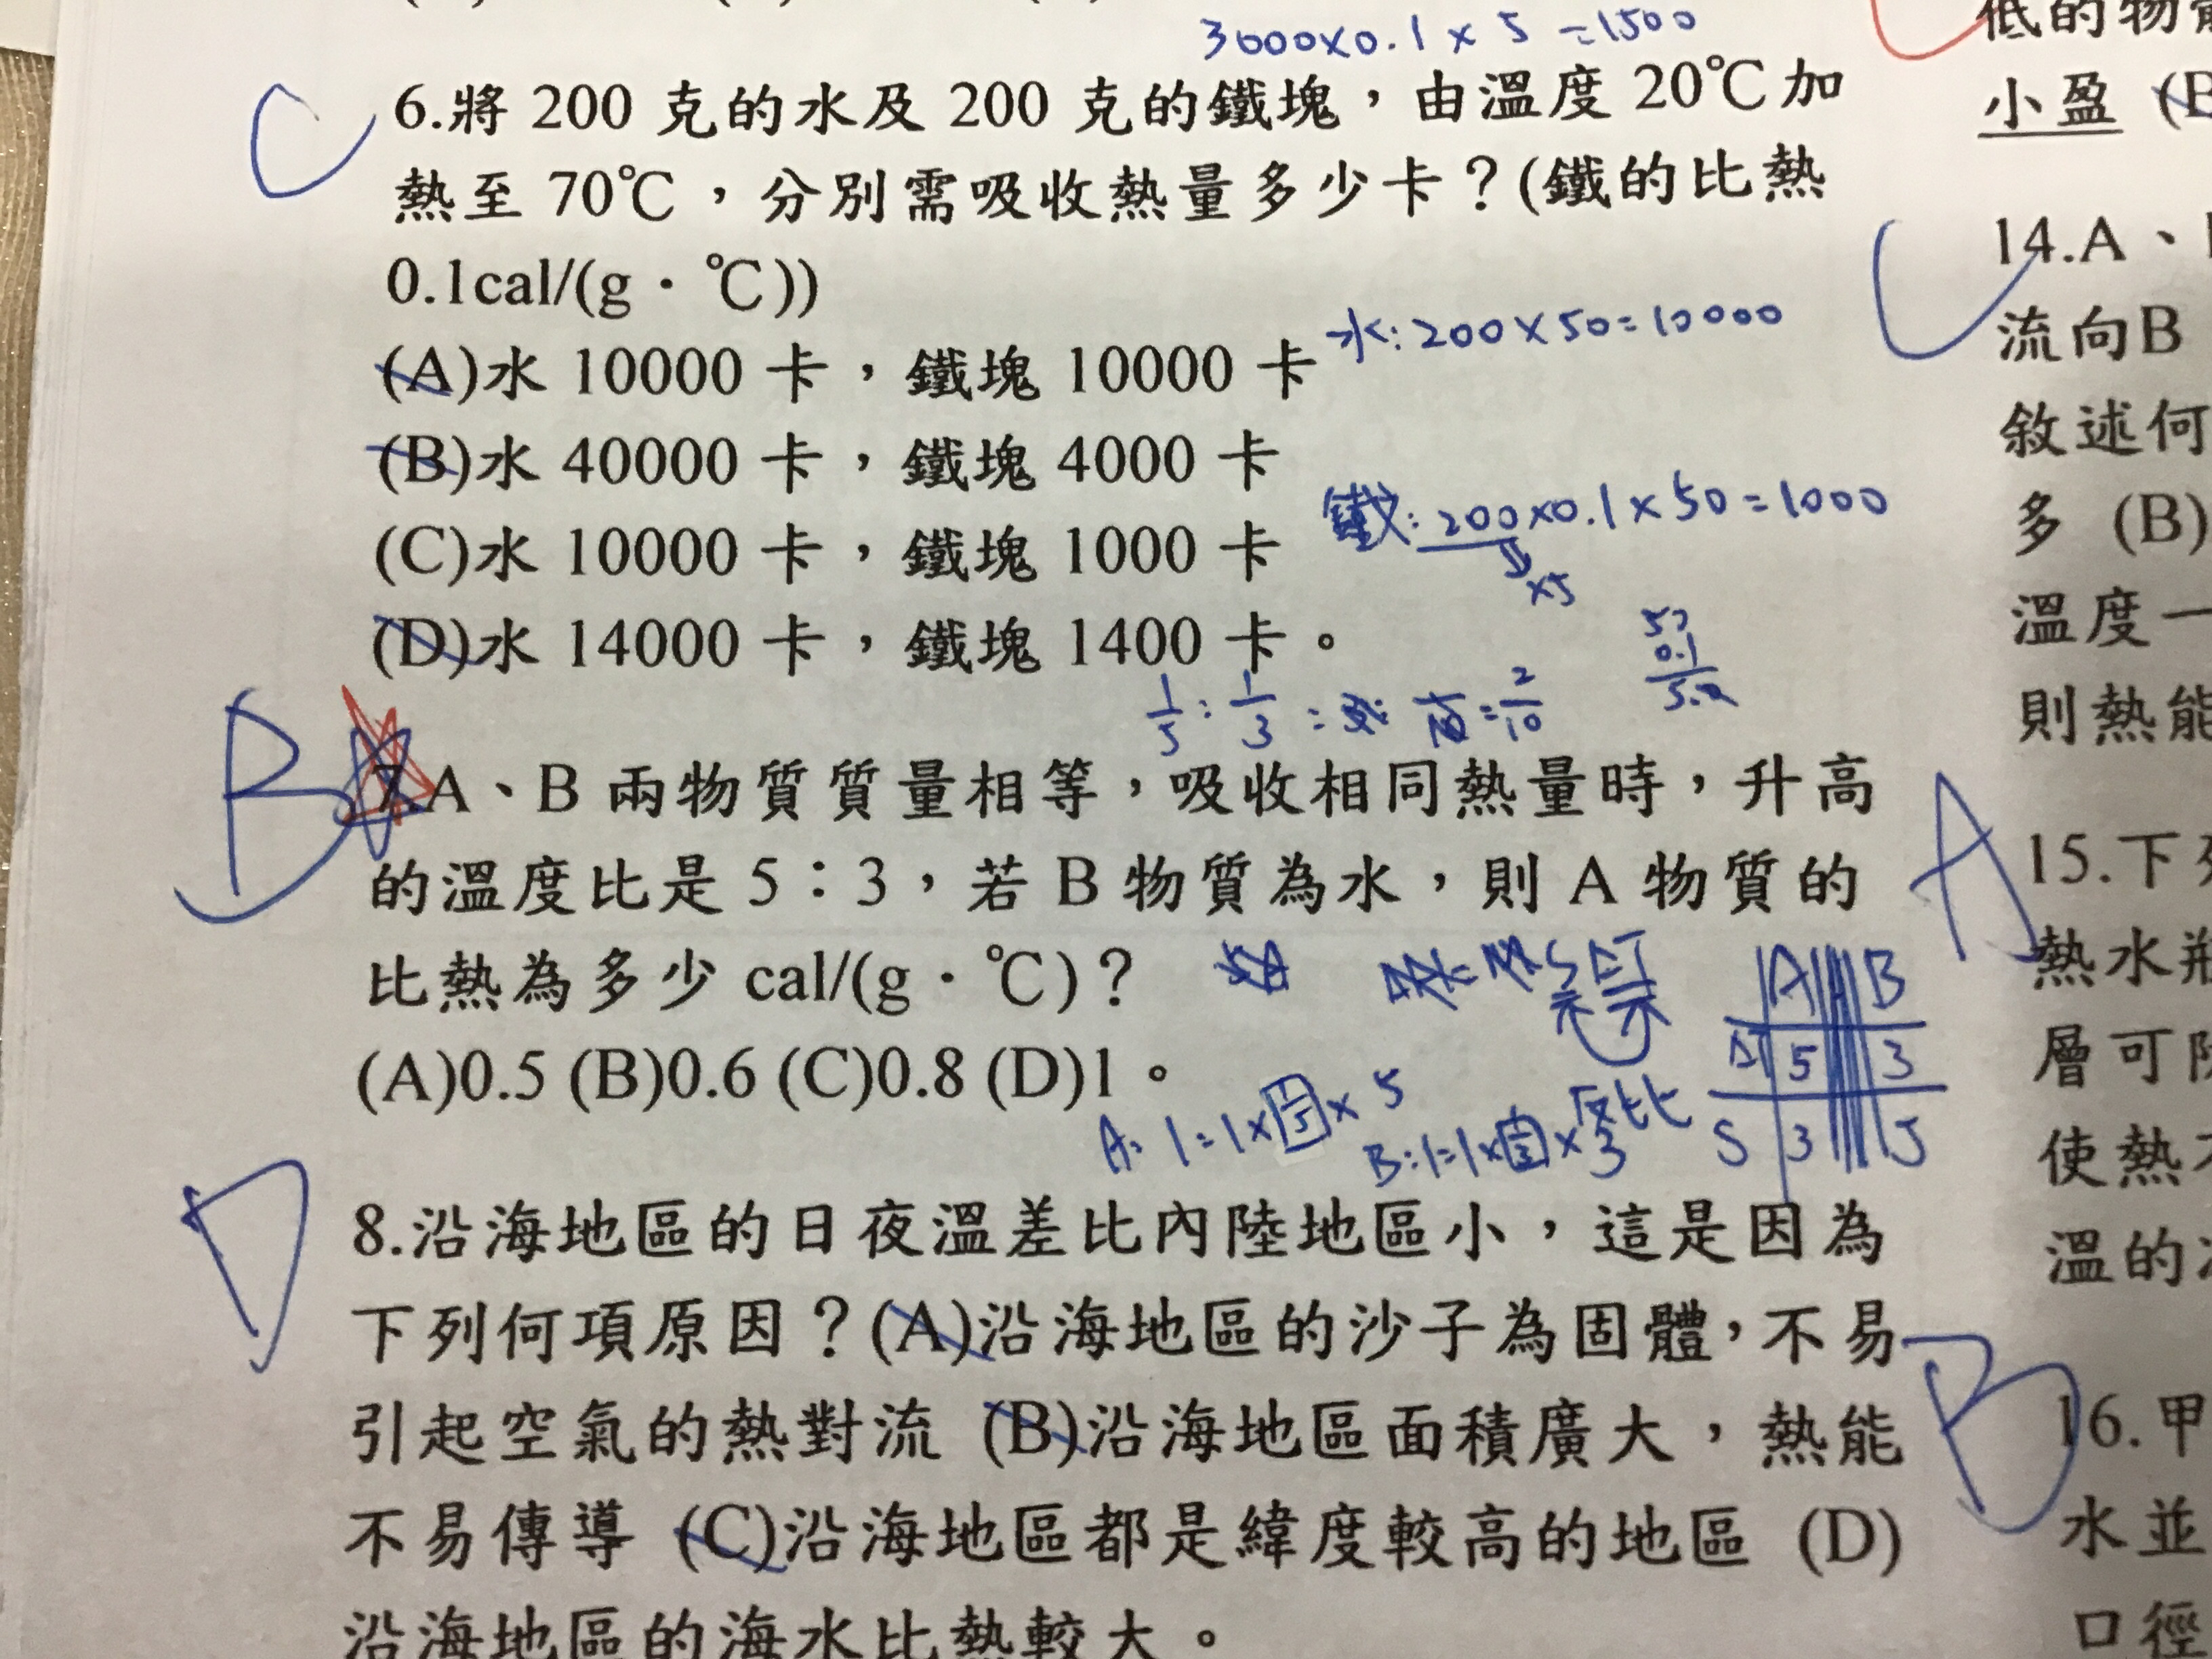 3000×0.1×5=1500
C
6.將 200 克的水及 200 克的鐵塊，由溫度 20℃加
熱至 70℃，分別需吸收熱量多少卡？(鐵的比熱
0.1cal/(g・℃))
(A)水 10000 卡，鐵塊 10000 卡
水:200×50=10000
(B)水 40000 卡，鐵塊 4000 卡
鐵:200×0.1×50=1000
×5
(C)水 10000 卡，鐵塊 1000 卡
(D)水 14000 卡，鐵塊 1400 卡。
50
0.1
B
7.A、B 兩物質質量相等，吸收相同熱量時，升高
的溫度比是 5：3，若 B 物質為水，則 A 物質的
比熱為多少 cal/(g・℃)？
(A)0.5 (B)0.6 (C)0.8 (D)1。
A B
ΔT 5 3
S 3 5
反比
A: 1=1×1/5×5
B:1=1×1/3×3
D
8.沿海地區的日夜溫差比內陸地區小，這是因為
下列何項原因？(A)沿海地區的沙子為固體，不易
引起空氣的熱對流 (B)沿海地區面積廣大，熱能
不易傳導 (C)沿海地區都是緯度較高的地區 (D)
沿海地區的海水比熱較大。
低的物
小盈 (B
C
14.A、
流向B
敘述何
多 (B)
溫度一
則熱能
A
15.下列
熱水瓶
層可防
使熱不
溫的
B
16.甲
水並
口徑